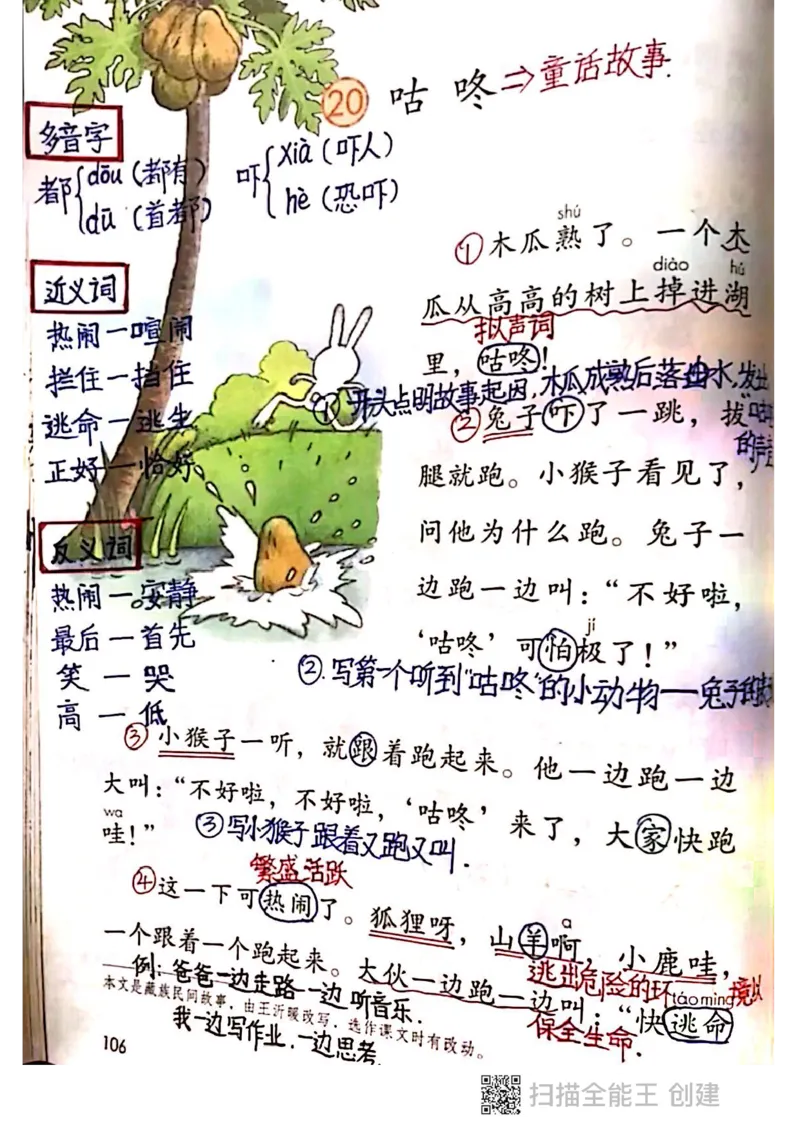 20 咕咚⇒童话故事.
多音字
都 dōu（都有）
dū（首都）
吓 xià（吓人）
hè（恐吓）
近义词
热闹一喧闹
拦住一挡住
逃命一逃生
正好一恰好
反义词
热闹一安静
最后一首先
笑一哭
高一低
shú
①木瓜熟了。一个木
diào hú
瓜从高高的树上掉进湖
拟声词
里，咕咚！
①开头点明故事起因,木瓜成熟后落
水,发出
"咕咚"
的声音
②兔子吓了一跳，拔
腿就跑。小猴子看见了，
问他为什么跑。兔子一
边跑一边叫：“不好啦，
jí
‘咕咚’可怕极了！”
②.写第一个听到"咕咚"的小动物一兔子的
③小猴子一听，就跟着跑起来。他一边跑一边
大叫：“不好啦，不好啦，‘咕咚’来了，大家快跑
wa
哇！”
③写小猴子跟着又跑又叫.
繁盛活跃
④这一下可热闹了。狐狸呀，山羊啊，小鹿哇，
a
一个跟着一个跑起来。大伙一边跑一边叫：“快逃命
táo mìng
逃出危险的环境以
保全生命.
例:爸爸一边走路一边听音乐.
我一边写作业,一边思考.
本文是藏族民间故事，由王沂暖改写，选作课文时有改动。
106
扫描全能王 创建